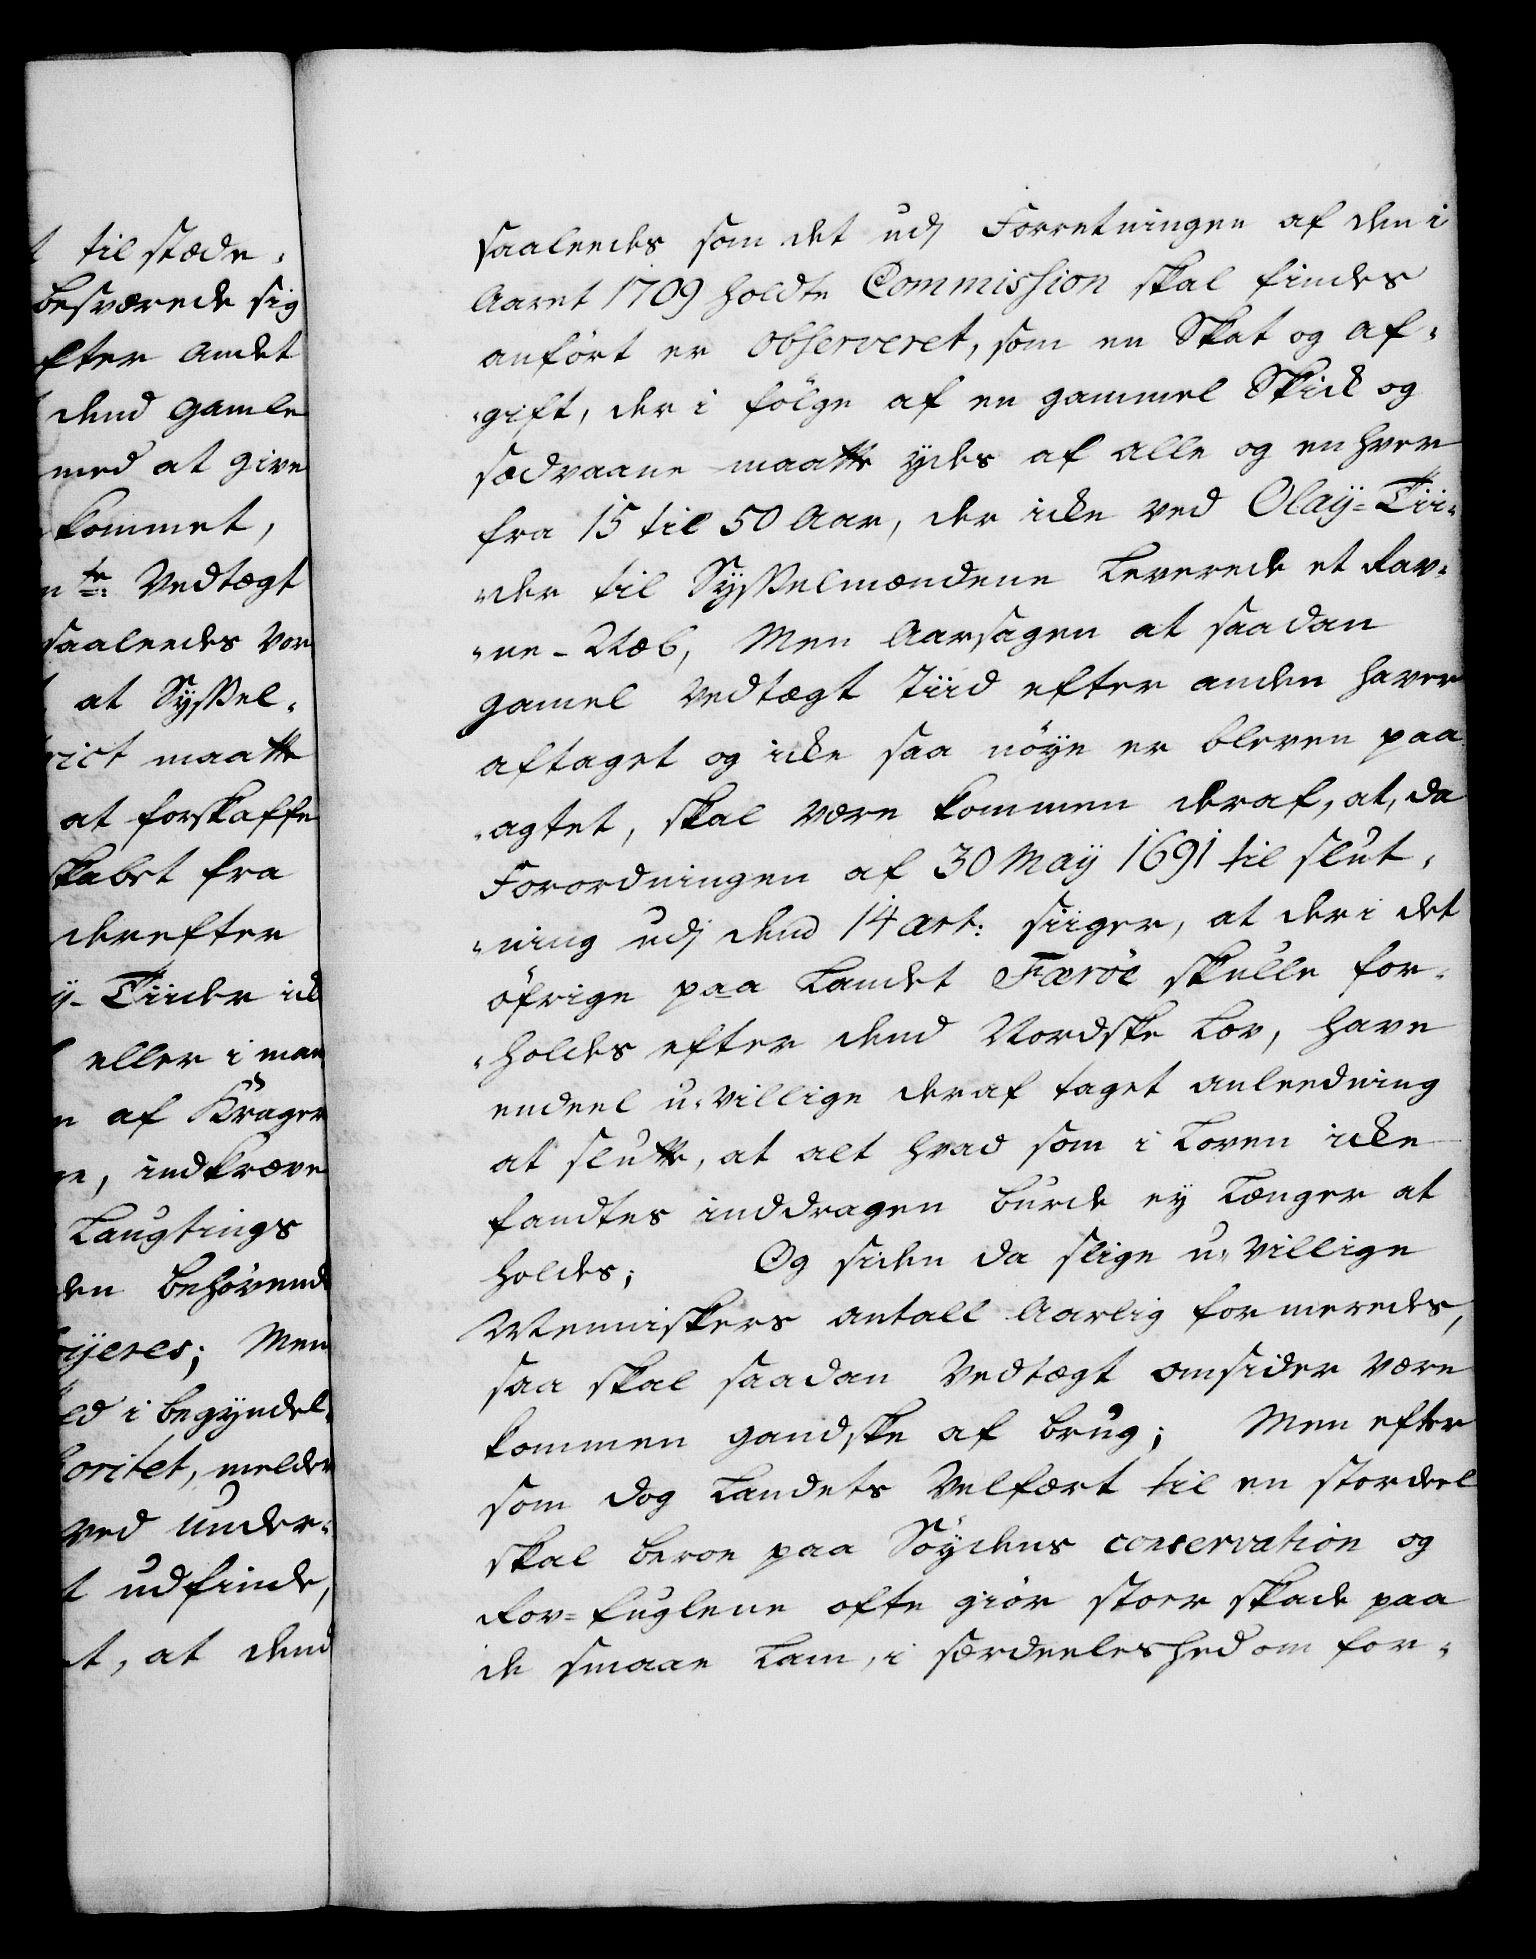 t til stæde,
besværede sig
fter andet
dend gamle
med at give
kommet,
te: Vedtægt
saaleedes vor
at Sysſel-
rict maatte
at forskaffe
skabet fra
derefter
ÿ- Tiider ick
eller i man
af Krager
indkræve
Laugtings
den behövende
ijeres; Men
ed i begyndel-
oritet, melder
ved under-
t udfinde,
t, at dend
saaleedes som det udj Forretningen af den i
Aaret 1709 holdte Commisſion skal findes
anfört er observeret, som en Skat og af-
-gift, der i fölge af en gammel Skick og
sædvaane maatte ydes af alle og enhver
fra 15 til 50 Aar, der icke ved Olaÿ= Tii-
-der til Sÿsſelmændene Leverede et Rav-
-ne- Næb, Men Aarsagen at saadan
gamel Vedtægt Tiid efter anden haver
aftaget og icke saa nöÿe er bleven paa
-agtet, skal være kommen deraf, at, da
Forordningen af 30 Maÿ 1691 til slut-
-ning udj dend 14 art: siiger, at der i det
öfrige paa Landet Færöe skulle for-
-holdes efter dend Nordske Lov, have
endeel u-villige deraf taget anleedning
at slutte, at alt hvad som i Loven icke
fandtes inddragen burde ey Længer at
holdes; Og siden da slige u-villige
Menniskers antall Aarlig formeredes,
saa skal saadan Vedtægt omsider være
kommen gandske af brug; Men efter
som dog Landets Velfært til en stordeel
skal beroe paa Söÿdens conservation og
Rov-fuglene ofte giör stoer skade paa
de smaae Lam, i særdeeleshed om for-